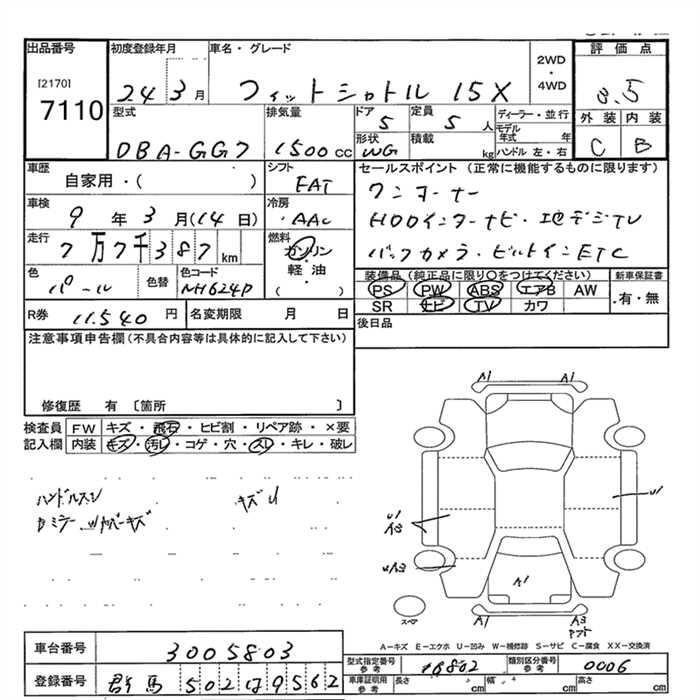 出品番号
[2170]
7110
初度登録年月
24 3月
車名・グレード
フィットシャトル 15X
2WD
・
4WD
評価点
3.5
外装 内装
C B
型式
DBA-GG7
排気量
1500cc
ドア
5
定員
5人
ディーラー・並行
モデル年式 年
ハンドル 左・右
形状
WG
積載
kg
車歴
自家用・( )
シフト
FAT
セールスポイント(正常に機能するものに限ります)
ワンオーナー
HDDインターナビ・地デジTV
バックカメラ・ビルトインETC
車検
9年3月(14日)
冷房
AAC
走行
7万7千387km
燃料
ガソリン
・
軽・油
( )
色
パール
色替
色コード
NH624P
装備品(純正品に限り○をつけてください)
PS PW ABS エアB AW
SR ナビ TV カワ
新車保証書
有・無
R券 11,540円
名変期限 月 日
後日品
注意事項申告欄(不具合内容等は具体的に記入して下さい)
修復歴 有〔箇所 〕
検査員 FW キズ・飛石・ヒビ割・リペア跡・×要
記入欄 内装 キズ・汚レ・コゲ・穴・スレ・キレ・破レ
ハンドルスレ
キズU
A1 A1
U1
U1
A1
A1 A3
スペア
A-キズ E-エクボ U-凹み W-補修跡 S-サビ C-腐食 XX-交換済
車台番号 3005803
登録番号 群馬 502 は 9562
型式指定番号 参考 16802
類別区分番号 参考 0006
車庫証明用 参考 長さ cm 幅 cm 高さ cm